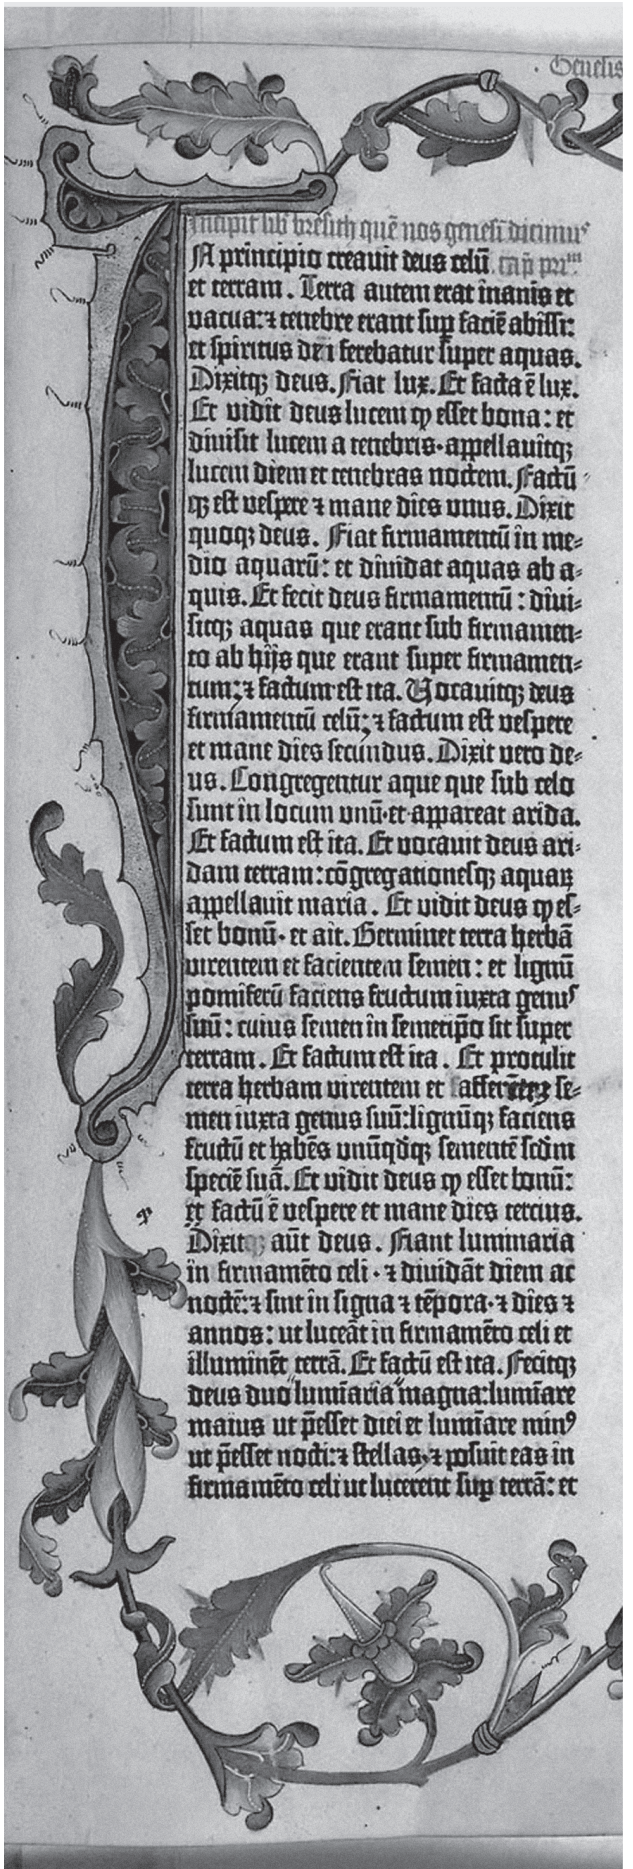 Genesis
Incipit lib᷒ bresith quē nos genesī dicimus
IN principio creauit deus celū cap̄ pri^m
et terram. Terra autem erat inanis et
vacua: ⁊ tenebre erant sup̱ faciē abissi:
et spiritus dei ferebatur super aquas.
Dixitqꝫ deus. Fiat lux. Et facta ē lux.
Et vidit deus lucem ꝙ esset bona: et
diuisit lucem a tenebris · appellauitqꝫ
lucem diem et tenebras noctem. Factū
qꝫ est vespere ⁊ mane dies vnus. Dixit
quoqꝫ deus. Fiat firmamentū in me-
dio aquarū: et diuidat aquas ab a-
quis. Et fecit deus firmamentū: diui-
sitqꝫ aquas que erant sub firmamen-
to ab hijs que erant super firmamen-
tum: ⁊ factum est ita. Vocauitqꝫ deus
firmamentū celū: ⁊ factum est vespere
et mane dies secundus. Dixit vero de-
us. Congregentur aque que sub celo
sunt in locum vnū · et appareat arida.
Et factum est ita. Et vocauit deus ari-
dam terram: cōgregationesqꝫ aquaꝝ
appellauit maria. Et vidit deus ꝙ es-
set bonū · et ait. Germinet terra herbā
virentem et facientem semen: et lignū
pomiferū faciens fructum iuxta genus
suū: cuius semen in semetip̄o sit super
terram. Et factum est ita. Et protulit
terra herbam virentem et afferētem se-
men iuxta genus suū: lignūqꝫ faciens
fructū et habēs vnūqd̄qꝫ sementē scd̄m
speciē suā. Et vidit deus ꝙ esset bonū:
et factū ē vespere et mane dies tercius.
Dixitqꝫ aūt deus. Fiant luminaria
in firmamēto celi · ⁊ diuidāt diem ac
noctē: ⁊ sint in signa ⁊ tēpora · ⁊ dies ⁊
annos: ut luceāt in firmamēto celi et
illuminēt terrā. Et factū est ita. Fecitqꝫ
deus duo lumīaria magna: lumīare
maius ut p̄esset diei et lumīare minꝰ
ut p̄esset nocti: ⁊ stellas · ⁊ posuit eas in
firmamēto celi ut lucerent sup̱ terrā: et